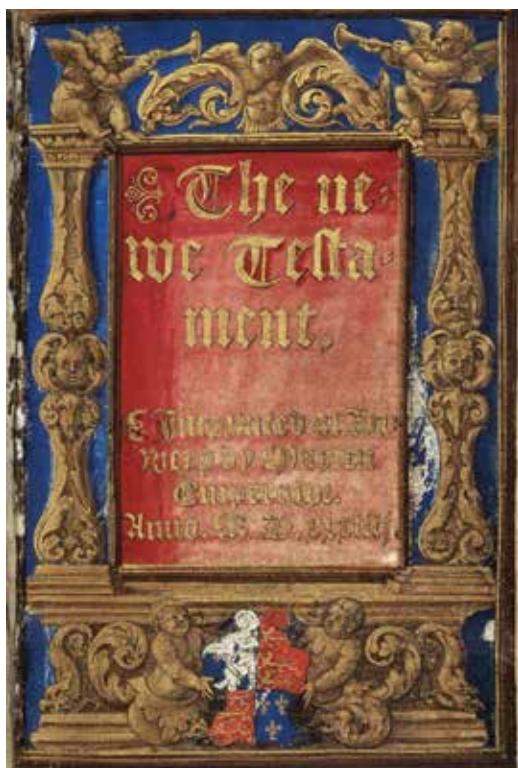 The ne=
we Testa=
ment.
Imprinted at An
werp by Marten
Emperowr.
Anno. M. D. xxxiiij.